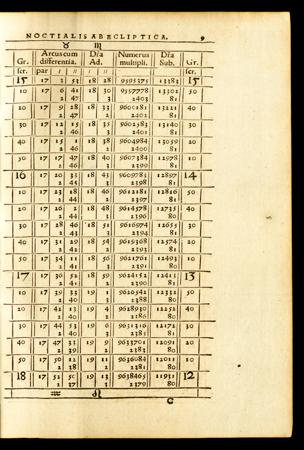 NOCTIALIS AB ECLIPTICA. 9
♉ ♏
Gr. Arcus cum Dr̃a Numerus Dr̃a Gr.
scr. differentia. Ad. multipli. Sub. scr.
par ı ıı ı ıı
15 17 3 53 18 28 9595375 13383 15
10 17 6 41 18 30 9597778 13302 50
2 47 3 2403 81
20 17 9 28 18 33 9600181 13221 40
2 47 2 2402 81
30 17 12 15 18 35 9602583 13140 30
2 46 3 2401 81
40 17 15 1 18 38 9604984 13059 20
2 46 2 2400 81
50 17 17 47 18 40 9607384 12978 10
2 46 3 2399 81
16 17 20 33 18 43 9609783 12897 14
2 45 3 2398 81
10 17 23 18 18 46 9612181 12816 50
2 44 2 2397 81
20 17 26 2 18 48 9614578 12735 40
2 44 3 2396 80
30 17 28 46 18 51 9616974 12655 30
2 43 3 2394 81
40 17 31 29 18 54 9619368 12574 20
2 42 2 2393 81
50 17 34 11 18 56 9621761 12493 10
2 41 3 2391 80
17 17 36 52 18 59 9624152 12413 13
2 41 2 2390 81
10 17 39 33 19 1 9626542 12332 50
2 40 3 2388 80
20 17 42 13 19 4 9628930 12252 40
2 40 2 2386 80
30 17 44 53 19 6 9631316 12172 30
2 40 3 2385 81
40 17 47 33 19 9 9633701 12091 20
2 39 2 2383 80
50 17 50 12 19 11 9636084 12011 10
2 38 2 2381 80
18 17 52 50 19 13 9638465 11931 12
2 37 3 2379 80
♒ ♌
C